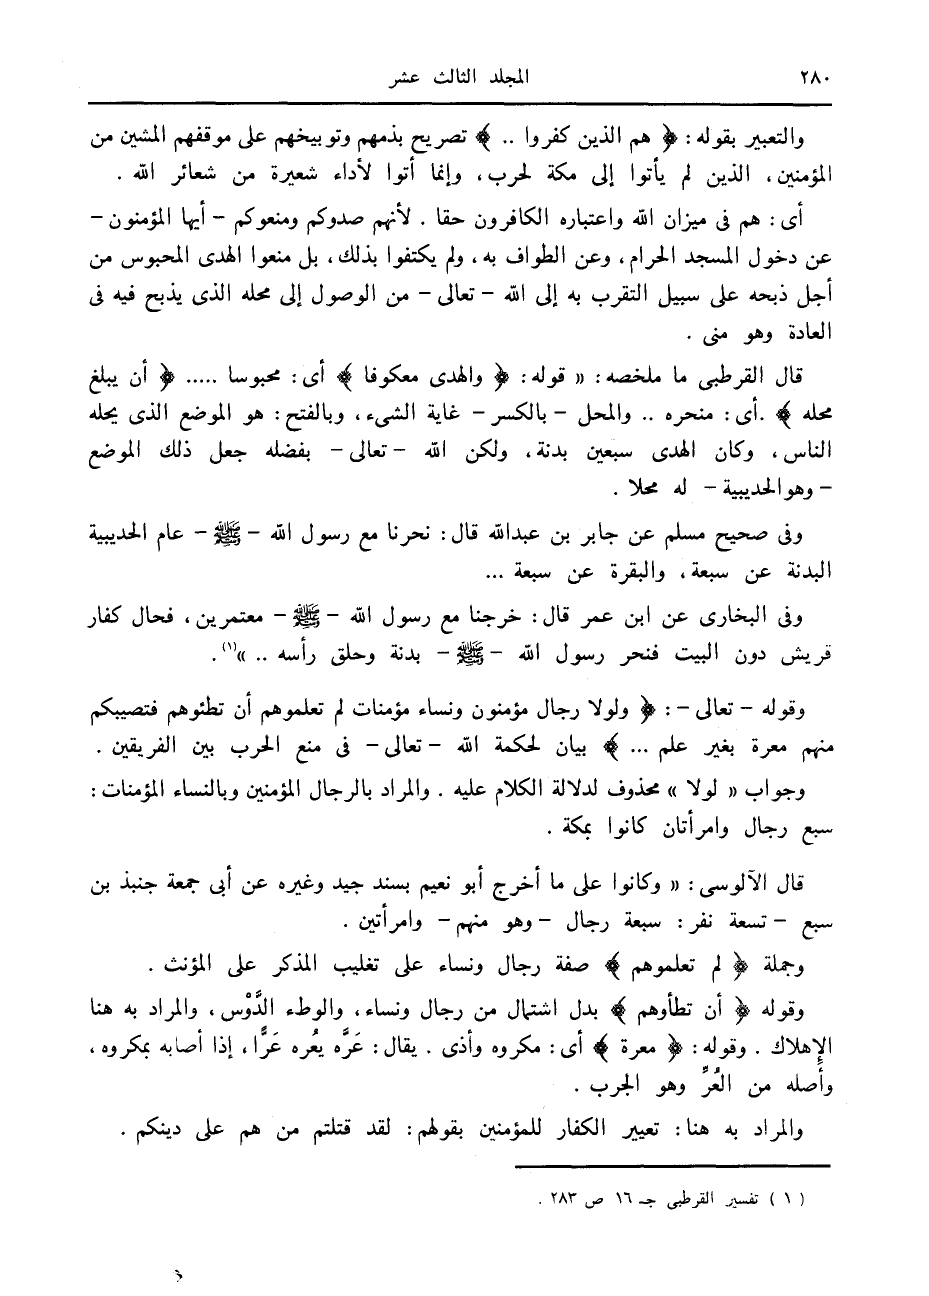 ٢٨٠ المجلد الثالث عشر
والتعبير بقوله : ﴿ هم الذين كفروا .. ﴾ تصريح بذمهم وتوبيخهم على موقفهم المشين من
المؤمنين ، الذين لم يأتوا إلى مكة لحرب ، وإنما أتوا لأداء شعيرة من شعائر الله .
أى : هم فى ميزان الله واعتباره الكافرون حقا . لأنهم صدوكم ومنعوكم – أيها المؤمنون –
عن دخول المسجد الحرام ، وعن الطواف به ، ولم يكتفوا بذلك ، بل منعوا الهدى المحبوس من
أجل ذبحه على سبيل التقرب به إلى الله – تعالى – من الوصول إلى محله الذى يذبح فيه فى
العادة وهو منى .
قال القرطبى ما ملخصه : « قوله : ﴿ والهدى معكوفا ﴾ أى : محبوسا ..... ﴿ أن يبلغ
محله ﴾ . أى : منحره .. والمحل – بالكسر – غاية الشىء ، وبالفتح : هو الموضع الذى يحله
الناس ، وكان الهدى سبعين بدنة ، ولكن الله – تعالى – بفضله جعل ذلك الموضع
– وهو الحديبية – له محلا .
وفى صحيح مسلم عن جابر بن عبدالله قال : نحرنا مع رسول الله – ﷺ – عام الحديبية
البدنة عن سبعة ، والبقرة عن سبعة ...
وفى البخارى عن ابن عمر قال : خرجنا مع رسول الله – ﷺ – معتمرين ، فحال كفار
قريش دون البيت فنحر رسول الله – ﷺ – بدنة وحلق رأسه .. »(١) .
وقوله – تعالى – : ﴿ ولولا رجال مؤمنون ونساء مؤمنات لم تعلموهم أن تطئوهم فتصيبكم
منهم معرة بغير علم ... ﴾ بيان لحكمة الله – تعالى – فى منع الحرب بين الفريقين .
وجواب « لولا » محذوف لدلالة الكلام عليه . والمراد بالرجال المؤمنين وبالنساء المؤمنات :
سبع رجال وامرأتان كانوا بمكة .
قال الآلوسى : « وكانوا على ما أخرج أبو نعيم بسند جيد وغيره عن أبى جمعة جنبذ بن
سبع – تسعة نفر : سبعة رجال – وهو منهم – وامرأتين .
وجملة ﴿ لم تعلموهم ﴾ صفة رجال ونساء على تغليب المذكر على المؤنث .
وقوله ﴿ أن تطأوهم ﴾ بدل اشتمال من رجال ونساء ، والوطء الدَّوْس ، والمراد به هنا
الإهلاك . وقوله : ﴿ معرة ﴾ أى : مكروه وأذى . يقال : عَرَّه يعُره عَرًّا ، إذا أصابه بمكروه ،
وأصله من العُرِّ وهو الجرب .
والمراد به هنا : تعيير الكفار للمؤمنين بقولهم : لقد قتلتم من هم على دينكم .
( ١ ) تفسير القرطبى جـ ١٦ ص ٢٨٣ .